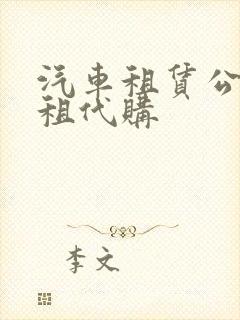 汽車租賃公
租代購
李文